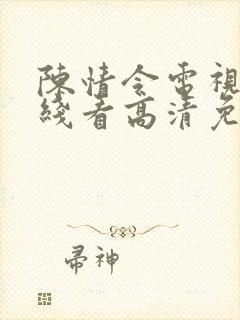 陳情令電視
綫看高清免
帚神